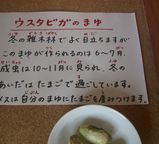 ウスタビガのまゆ
冬の雑木林でよく目立ちますが
このまゆが作られるのは6〜7月。
成虫は10〜11月に見られ、冬の
あいだはたまごで過ごしています。
メスは自分のまゆにたまごを産みつけます。